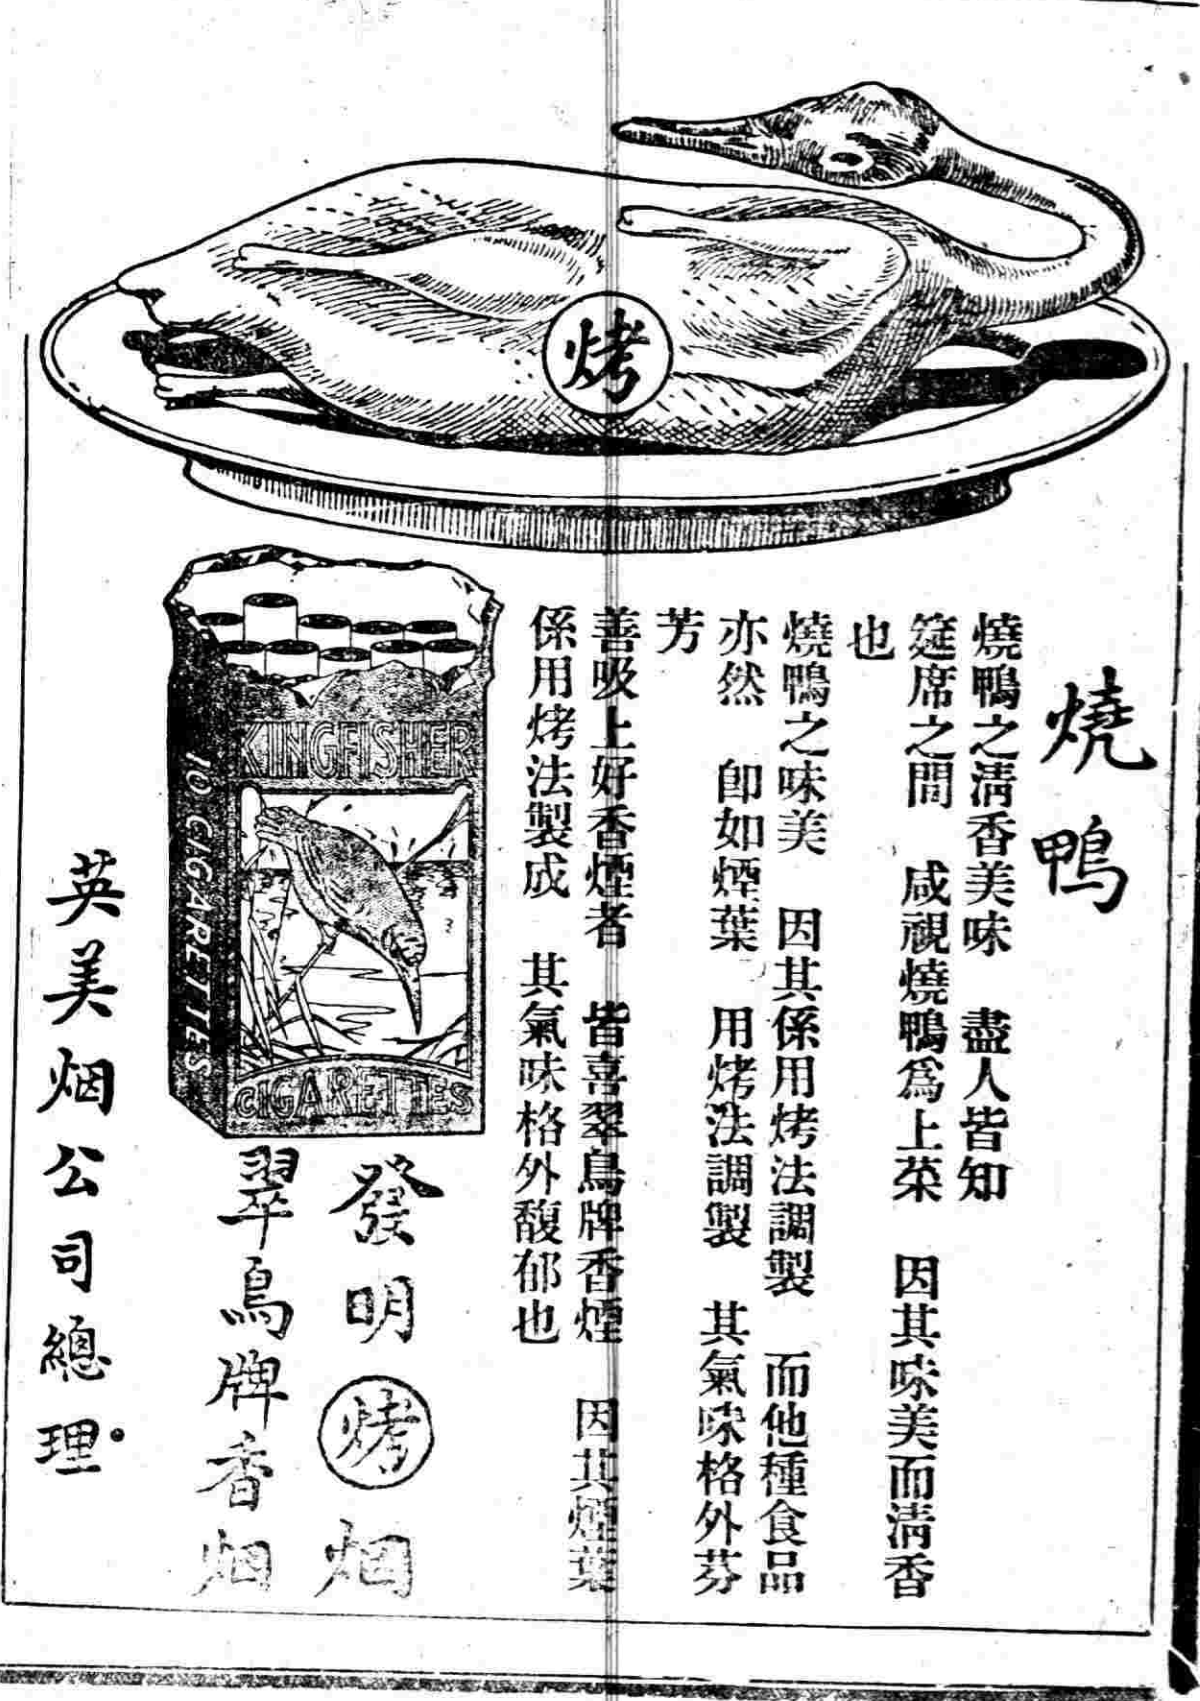 烤
燒鴨
燒鴨之淸香美味　盡人皆知
筵席之間　咸視燒鴨爲上菜　因其味美而淸香
也
燒鴨之味美　因其係用烤法調製　而他種食品
亦然　卽如煙葉　用烤法調製　其氣味格外芬
芳
善吸上好香煙者　皆喜翠鳥牌香煙　因其煙葉
係用烤法製成　其氣味格外馥郁也
KINGFISHER
10 CIGARETTES
CIGARETTES
發明烤烟
翠鳥牌香烟
英美烟公司總理